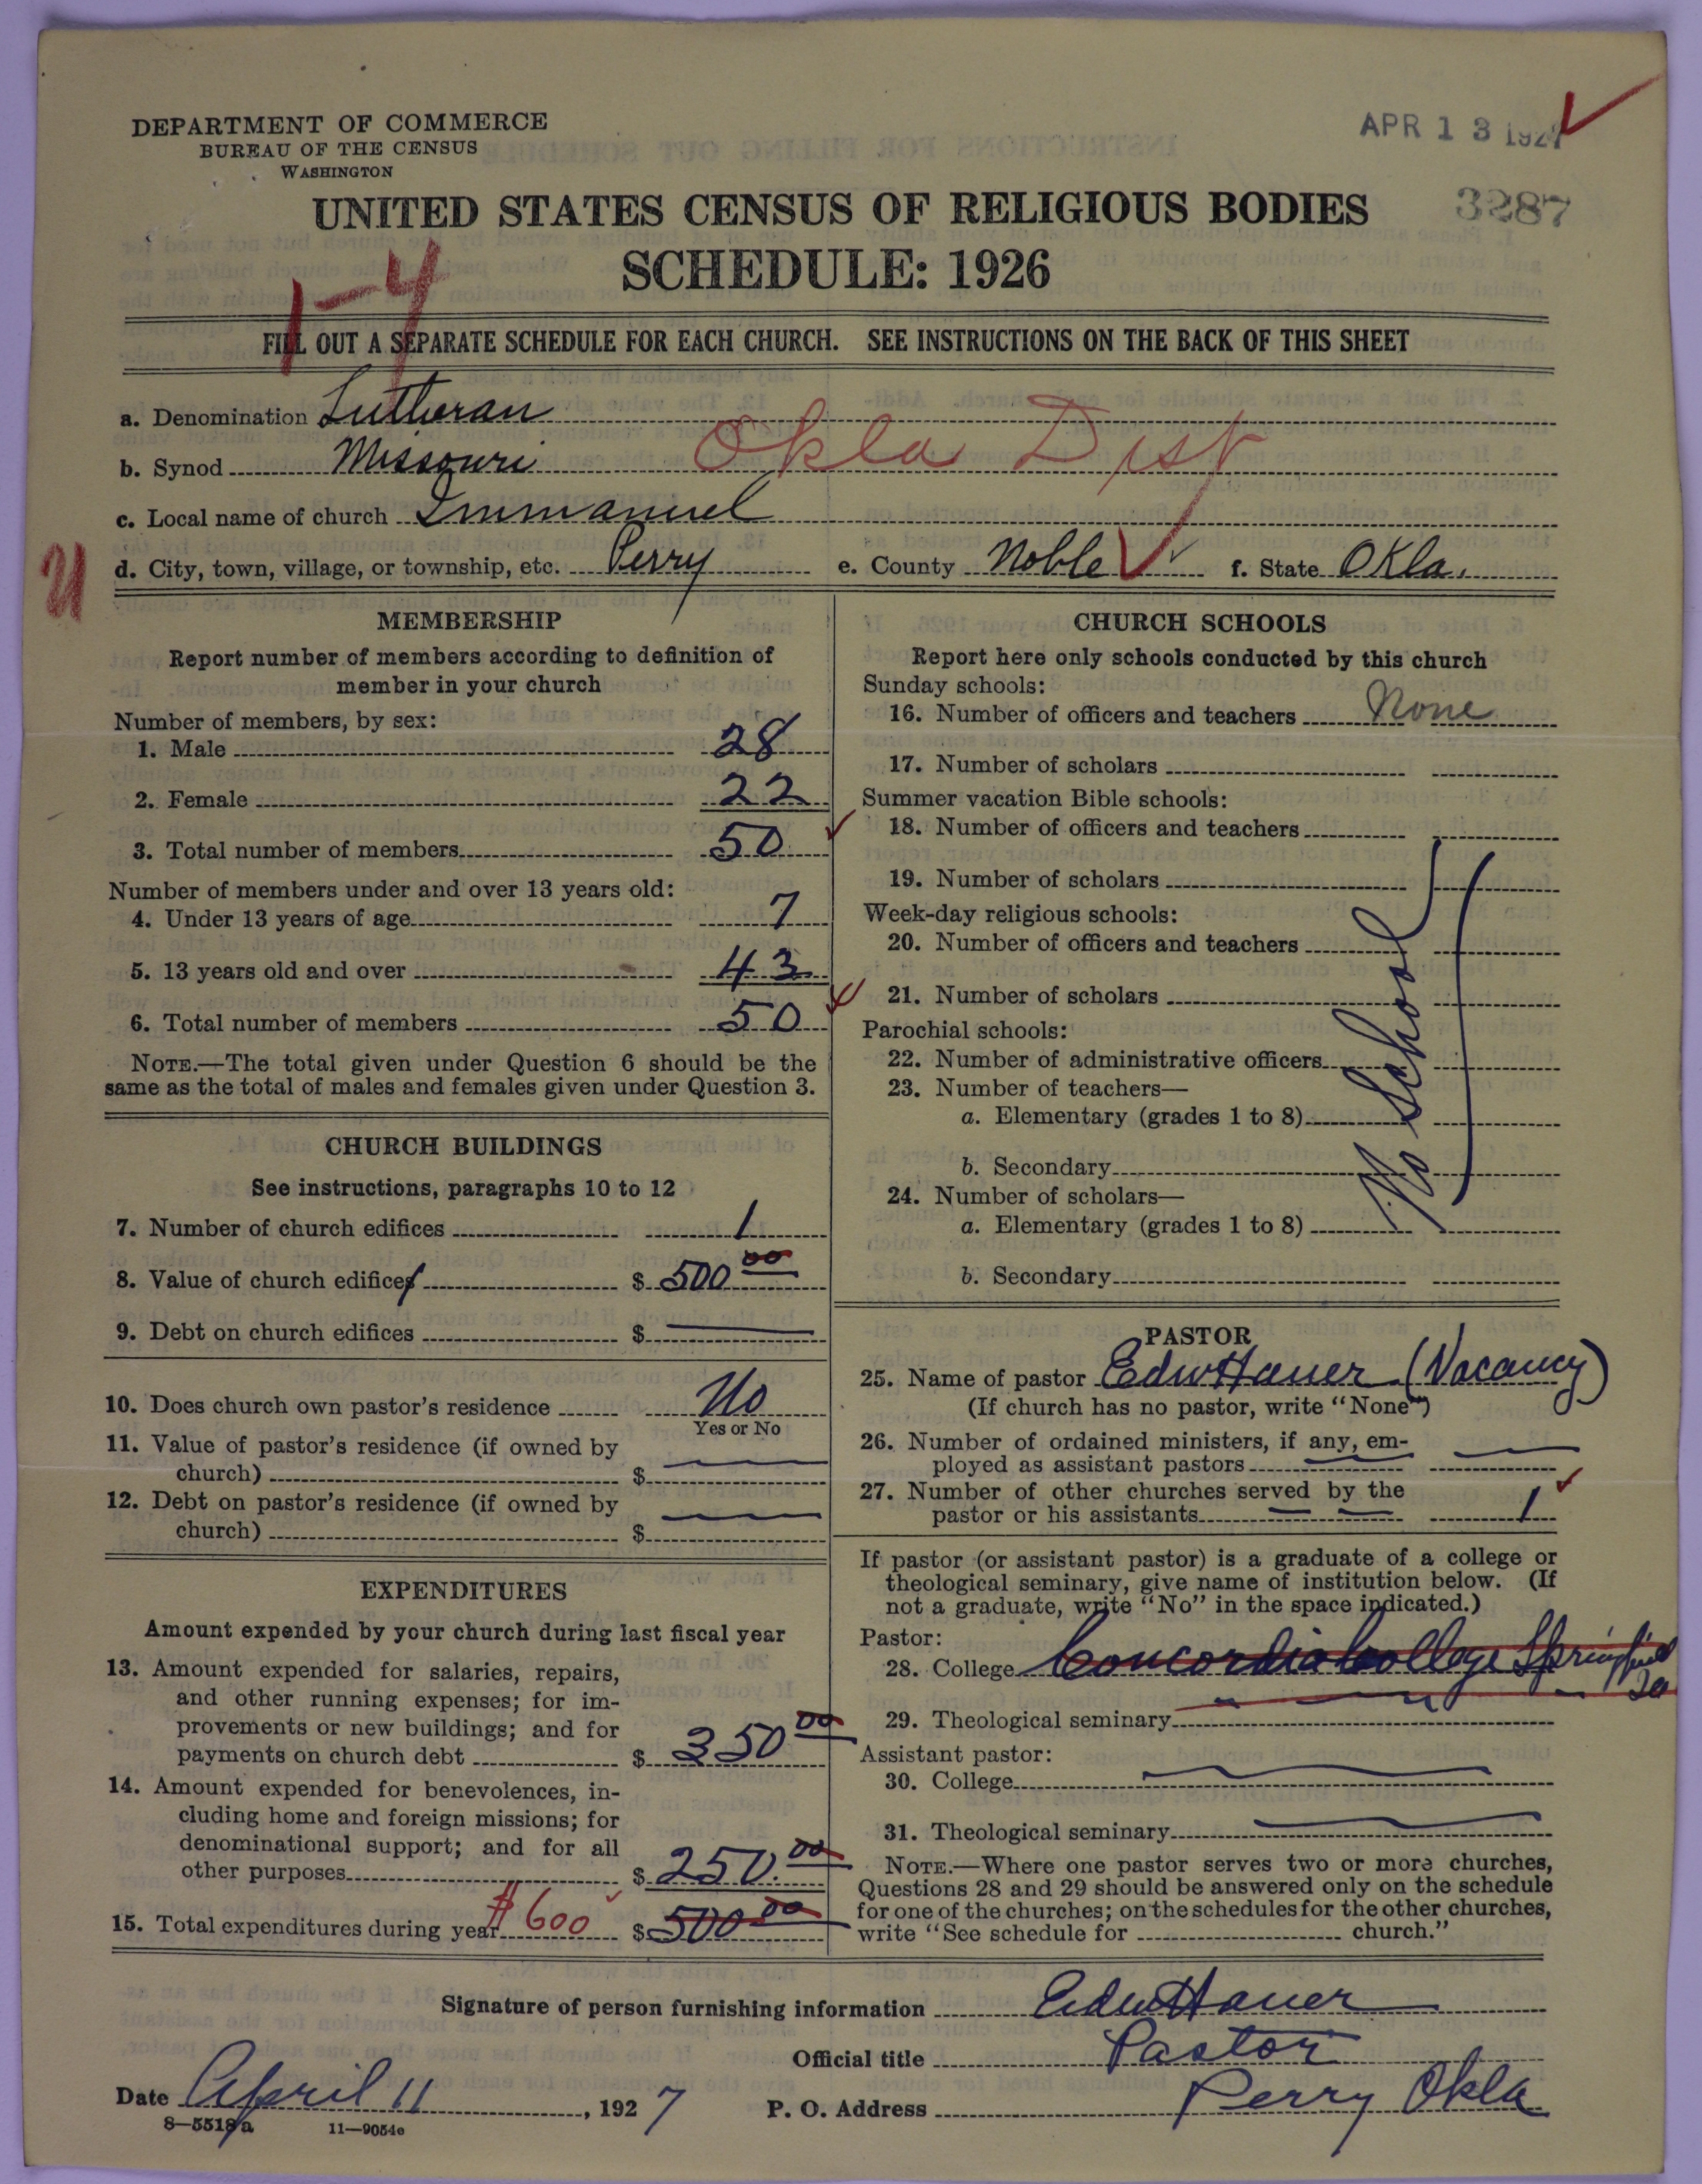 DEPARTMENT OF COMMERCE
BUREAU OF THE CENSUS
WASHINGTON
APR 13 1927
3287
UNITED STATES CENSUS OF RELIGIOUS BODIES
SCHEDULE: 1926
1-4
FILL OUT A SEPARATE SCHEDULE FOR EACH CHURCH. SEE INSTRUCTIONS ON THE BACK OF THIS SHEET
a. Denomination Lutheran
b. Synod Missouri Okla Dist
c. Local name of church Immanuel
d. City, town, village, or township, etc. Perry e. County Noble f. State Okla.
MEMBERSHIP
Report number of members according to definition of
member in your church
Number of members, by sex:
1. Male 28
2. Female 22
3. Total number of members 50
Number of members under and over 13 years old:
4. Under 13 years of age 7
5. 13 years old and over 43
6. Total number of members 50
NOTE.—The total given under Question 6 should be the
same as the total of males and females given under Question 3.
CHURCH BUILDINGS
See instructions, paragraphs 10 to 12
7. Number of church edifices 1
8. Value of church edifices $ 500 00
9. Debt on church edifices $
10. Does church own pastor's residence No
Yes or No
11. Value of pastor's residence (if owned by
church) $
12. Debt on pastor's residence (if owned by
church) $
EXPENDITURES
Amount expended by your church during last fiscal year
13. Amount expended for salaries, repairs,
and other running expenses; for im-
provements or new buildings; and for
payments on church debt $ 350 00
14. Amount expended for benevolences, in-
cluding home and foreign missions; for
denominational support; and for all
other purposes $ 250.00
15. Total expenditures during year $600 $ 500 00
CHURCH SCHOOLS
Report here only schools conducted by this church
Sunday schools:
16. Number of officers and teachers None
17. Number of scholars
Summer vacation Bible schools:
18. Number of officers and teachers
19. Number of scholars
Week-day religious schools:
20. Number of officers and teachers
21. Number of scholars
Parochial schools:
22. Number of administrative officers
23. Number of teachers—
a. Elementary (grades 1 to 8)
b. Secondary
24. Number of scholars—
a. Elementary (grades 1 to 8)
b. Secondary
No School
PASTOR
25. Name of pastor Edw Hauer (Vacancy)
(If church has no pastor, write "None")
26. Number of ordained ministers, if any, em-
ployed as assistant pastors
27. Number of other churches served by the
pastor or his assistants 1
If pastor (or assistant pastor) is a graduate of a college or
theological seminary, give name of institution below. (If
not a graduate, write "No" in the space indicated.)
Pastor:
28. College Concordia College Springfield
29. Theological seminary
Assistant pastor:
30. College
31. Theological seminary
NOTE.—Where one pastor serves two or more churches,
Questions 28 and 29 should be answered only on the schedule
for one of the churches; on the schedules for the other churches,
write "See schedule for church."
Signature of person furnishing information Edw Hauer
Official title Pastor
Date April 11, 1927 P. O. Address Perry Okla
8—5518a 11—9054e